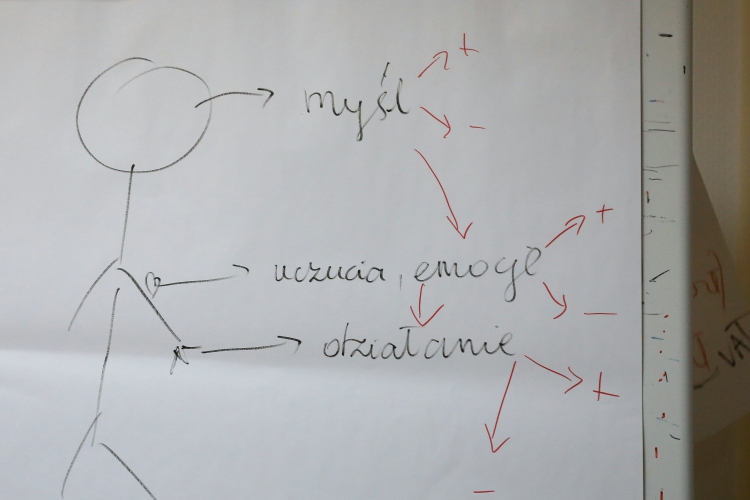 myśl +
-
uczucia, emocje +
-
działanie
+
-
VAT